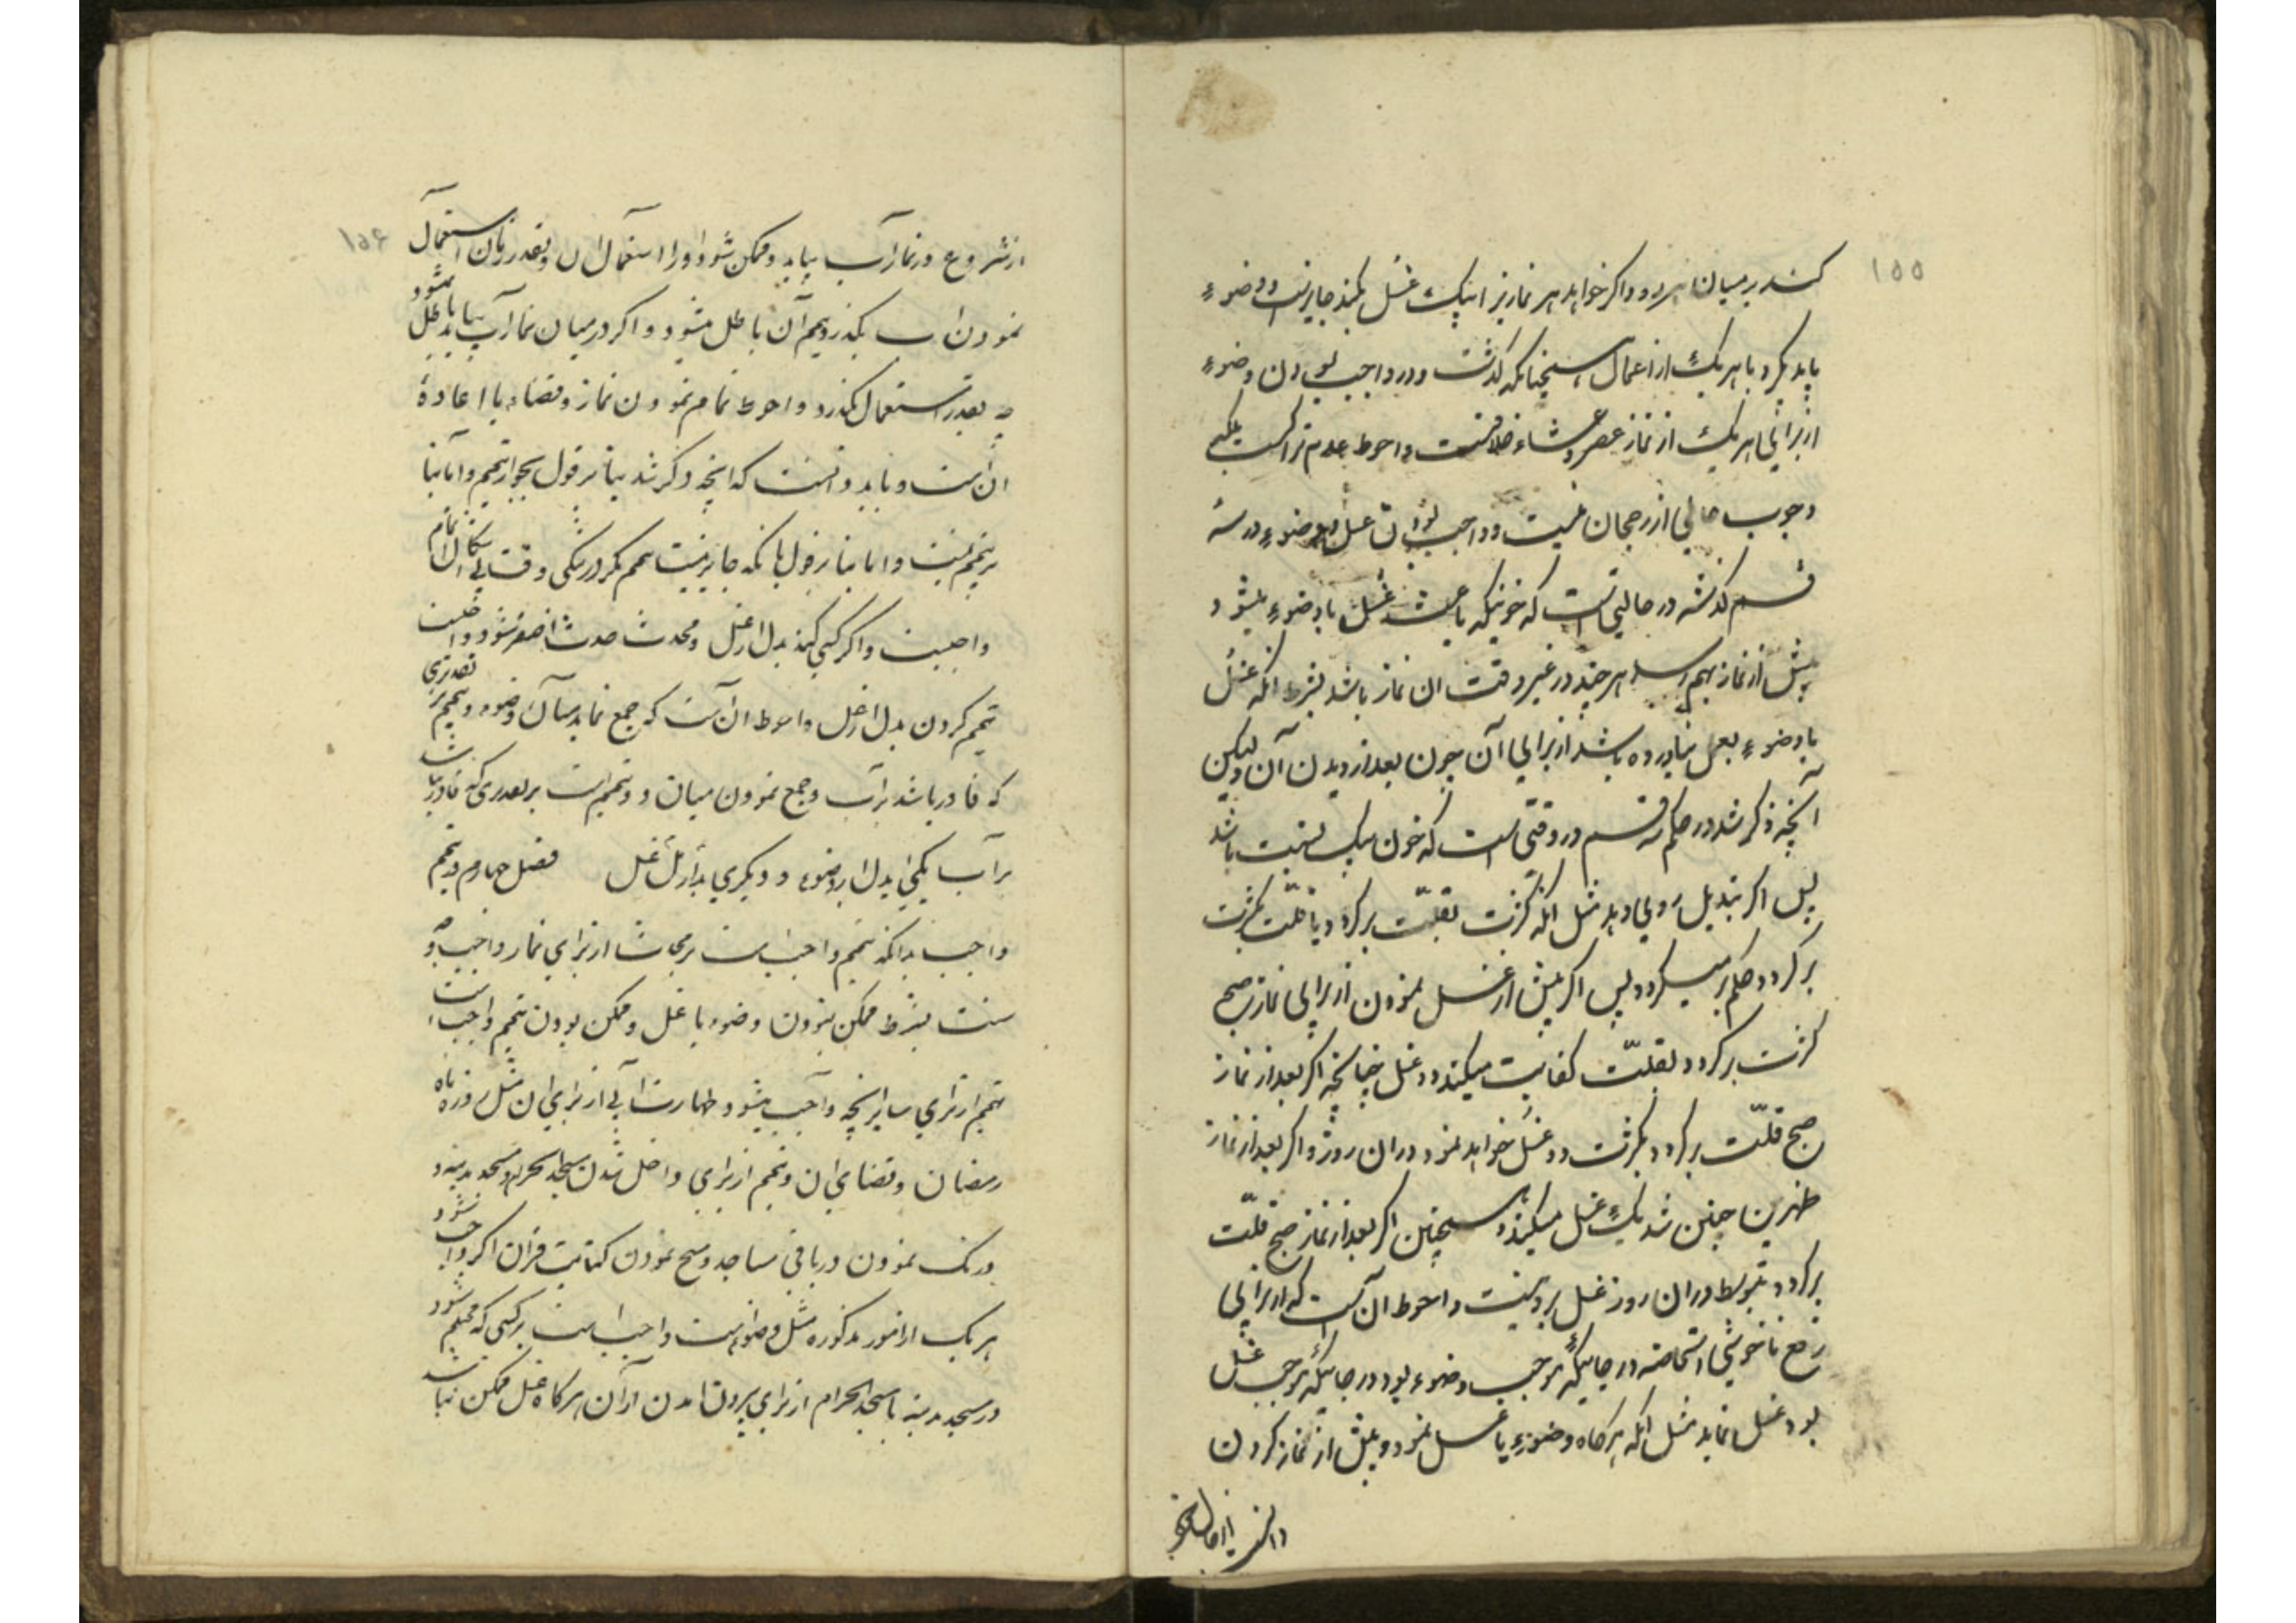 ۱۵۵
کند بر میان هر دو و اگر خواهد هر نمازیرا بیک غسل بکند جایزست و وضوء
باید بگیرد با هر یک از اعمال همچنانکه گذشت و در واجب بودن وضوء
از برای هر یک از نماز عصر و عشاء خلافست و احوط عدم ترکست بلکه
وجوب خالی از رجحان نیست و واجب بودن غسل و وضوء در سه
قسم گذشته در حالتی است که خونیکه باعث غسل یا وضوء میشود
پیش از نماز بهم رسد هر چند در غیر وقت آن نماز باشد بشرط آنکه غسل
یا وضوء بعمل نیاورده باشد از برای آن خون بعد از دیدن آن ولیکن
آنچه ذکر شد در حکم سه قسم در وقتی است که خون بیک نسبت باشد
پس اگر تبدیل روی دهد مثل آنکه کثرت بقلّت برگردد یا قلّت بکثرت
برگردد حکم بر میگردد پس اگر پیش از غسل نمودن از برای نماز صبح
کثرت برگردد بقلّت کفایت میکند دو غسل چنانچه اگر بعد از نماز
صبح قلّت برگردد بکثرت دو غسل خواهد نمود در آن روز و اگر بعد از نماز
ظهرین چنین شد یک غسل میکند و همچنین اگر بعد از نماز صبح قلّت
برگردد بتوسط در آن روز غسل بر او نیست و احوط آن است که از برای
رفع ناخوشی استحاضه در جائیکه موجب وضوء بود و در جائیکه موجب غسل
بود غسل نماید مثل آنکه هرگاه وضوء یا غسل نمود و پیش از نماز کردن
۱۵۶
از شروع در نماز آب بیابد و ممکن شود او را استعمال آن و بقدر زمان استعمال
نمودن آب بگذرد تیمم آن باطل میشود و اگر در میان نماز آب بیابد باطل میشود
بقدر استعمال بگذرد و احوط تمام نمودن نماز و قضاء یا اعادهٔ
آن است و باید دانست که آنچه ذکر شد بنا بر قول بجواز تیمم و اما بنا
بر تیمم نیست و اما بنا بر قول بآنکه جایز نیست تیمم مگر در تنگی وقت بی اشکال تمام
واجبست و اگر کسی کند بدل از غسل و محدث بحدث اصغر شود واجبست
تیمم کردن بدل از غسل و احوط آن است که جمع نماید میان وضوء و تیمم بر تقدیری
که قادر باشد بر آب و جمع نمودن میان دو تیمم است بر تقدیری که قادر نباشد
بر آب یکی بدل از وضوء و دیگری بدل از غسل فصل چهارم در تیمم
واجب بدانکه تیمم واجب است بر محدث از برای نماز واجب و
سنت بشرط ممکن نبودن وضوء یا غسل و ممکن بودن تیمم و واجب است
تیمم از برای سایر آنچه واجب میشود طهارت آبی از برای آن مثل روزه ماه
رمضان و قضای آن و تیمم از برای داخل شدن مسجد الحرام و مسجد مدینه و
درنگ نمودن در باقی مساجد و مسح نمودن کتابت قرآن اگر واجب شود
هر یک از امور مذکوره مثل وضوء است و واجب است بر کسی که محتلم شود
در مسجد مدینه یا مسجد الحرام از برای بیرون آمدن از آن هرگاه غسل ممکن نباشد